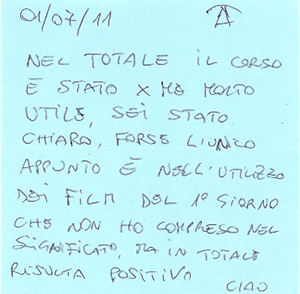 01/07/11
NEL TOTALE IL CORSO
È STATO X ME MOLTO
UTILE, SEI STATO
CHIARO, FORSE L'UNICO
APPUNTO È NELL'UTILIZZO
DEI FILM DEL 1° GIORNO
CHE NON HO COMPRESO NEL
SIGNIFICATO, MA IN TOTALE
RISULTA POSITIVO
CIAO